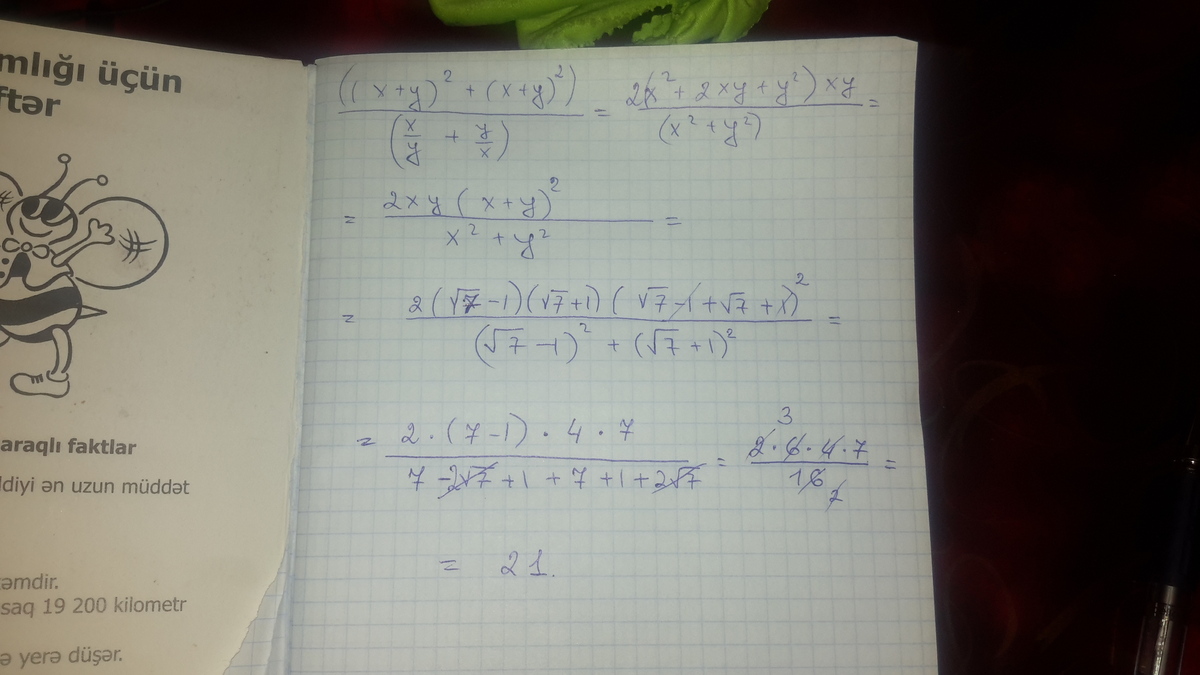 mlığı üçün
ftər
araqlı faktlar
ldiyi ən uzun müddət
əmdir.
saq 19 200 kilometr
ə yerə düşər.
((x+y)² + (x+y)²) / (x/y + y/x) = 2(x² + 2xy + y²)xy / (x² + y²) =
= 2xy(x+y)² / x² + y² =
= 2(√7-1)(√7+1)(√7-1+√7+1)² / (√7-1)² + (√7+1)² =
= 2·(7-1)·4·7 / 7-2√7+1+7+1+2√7 = 2·6·4·7 / 16 =
3
2
= 21.